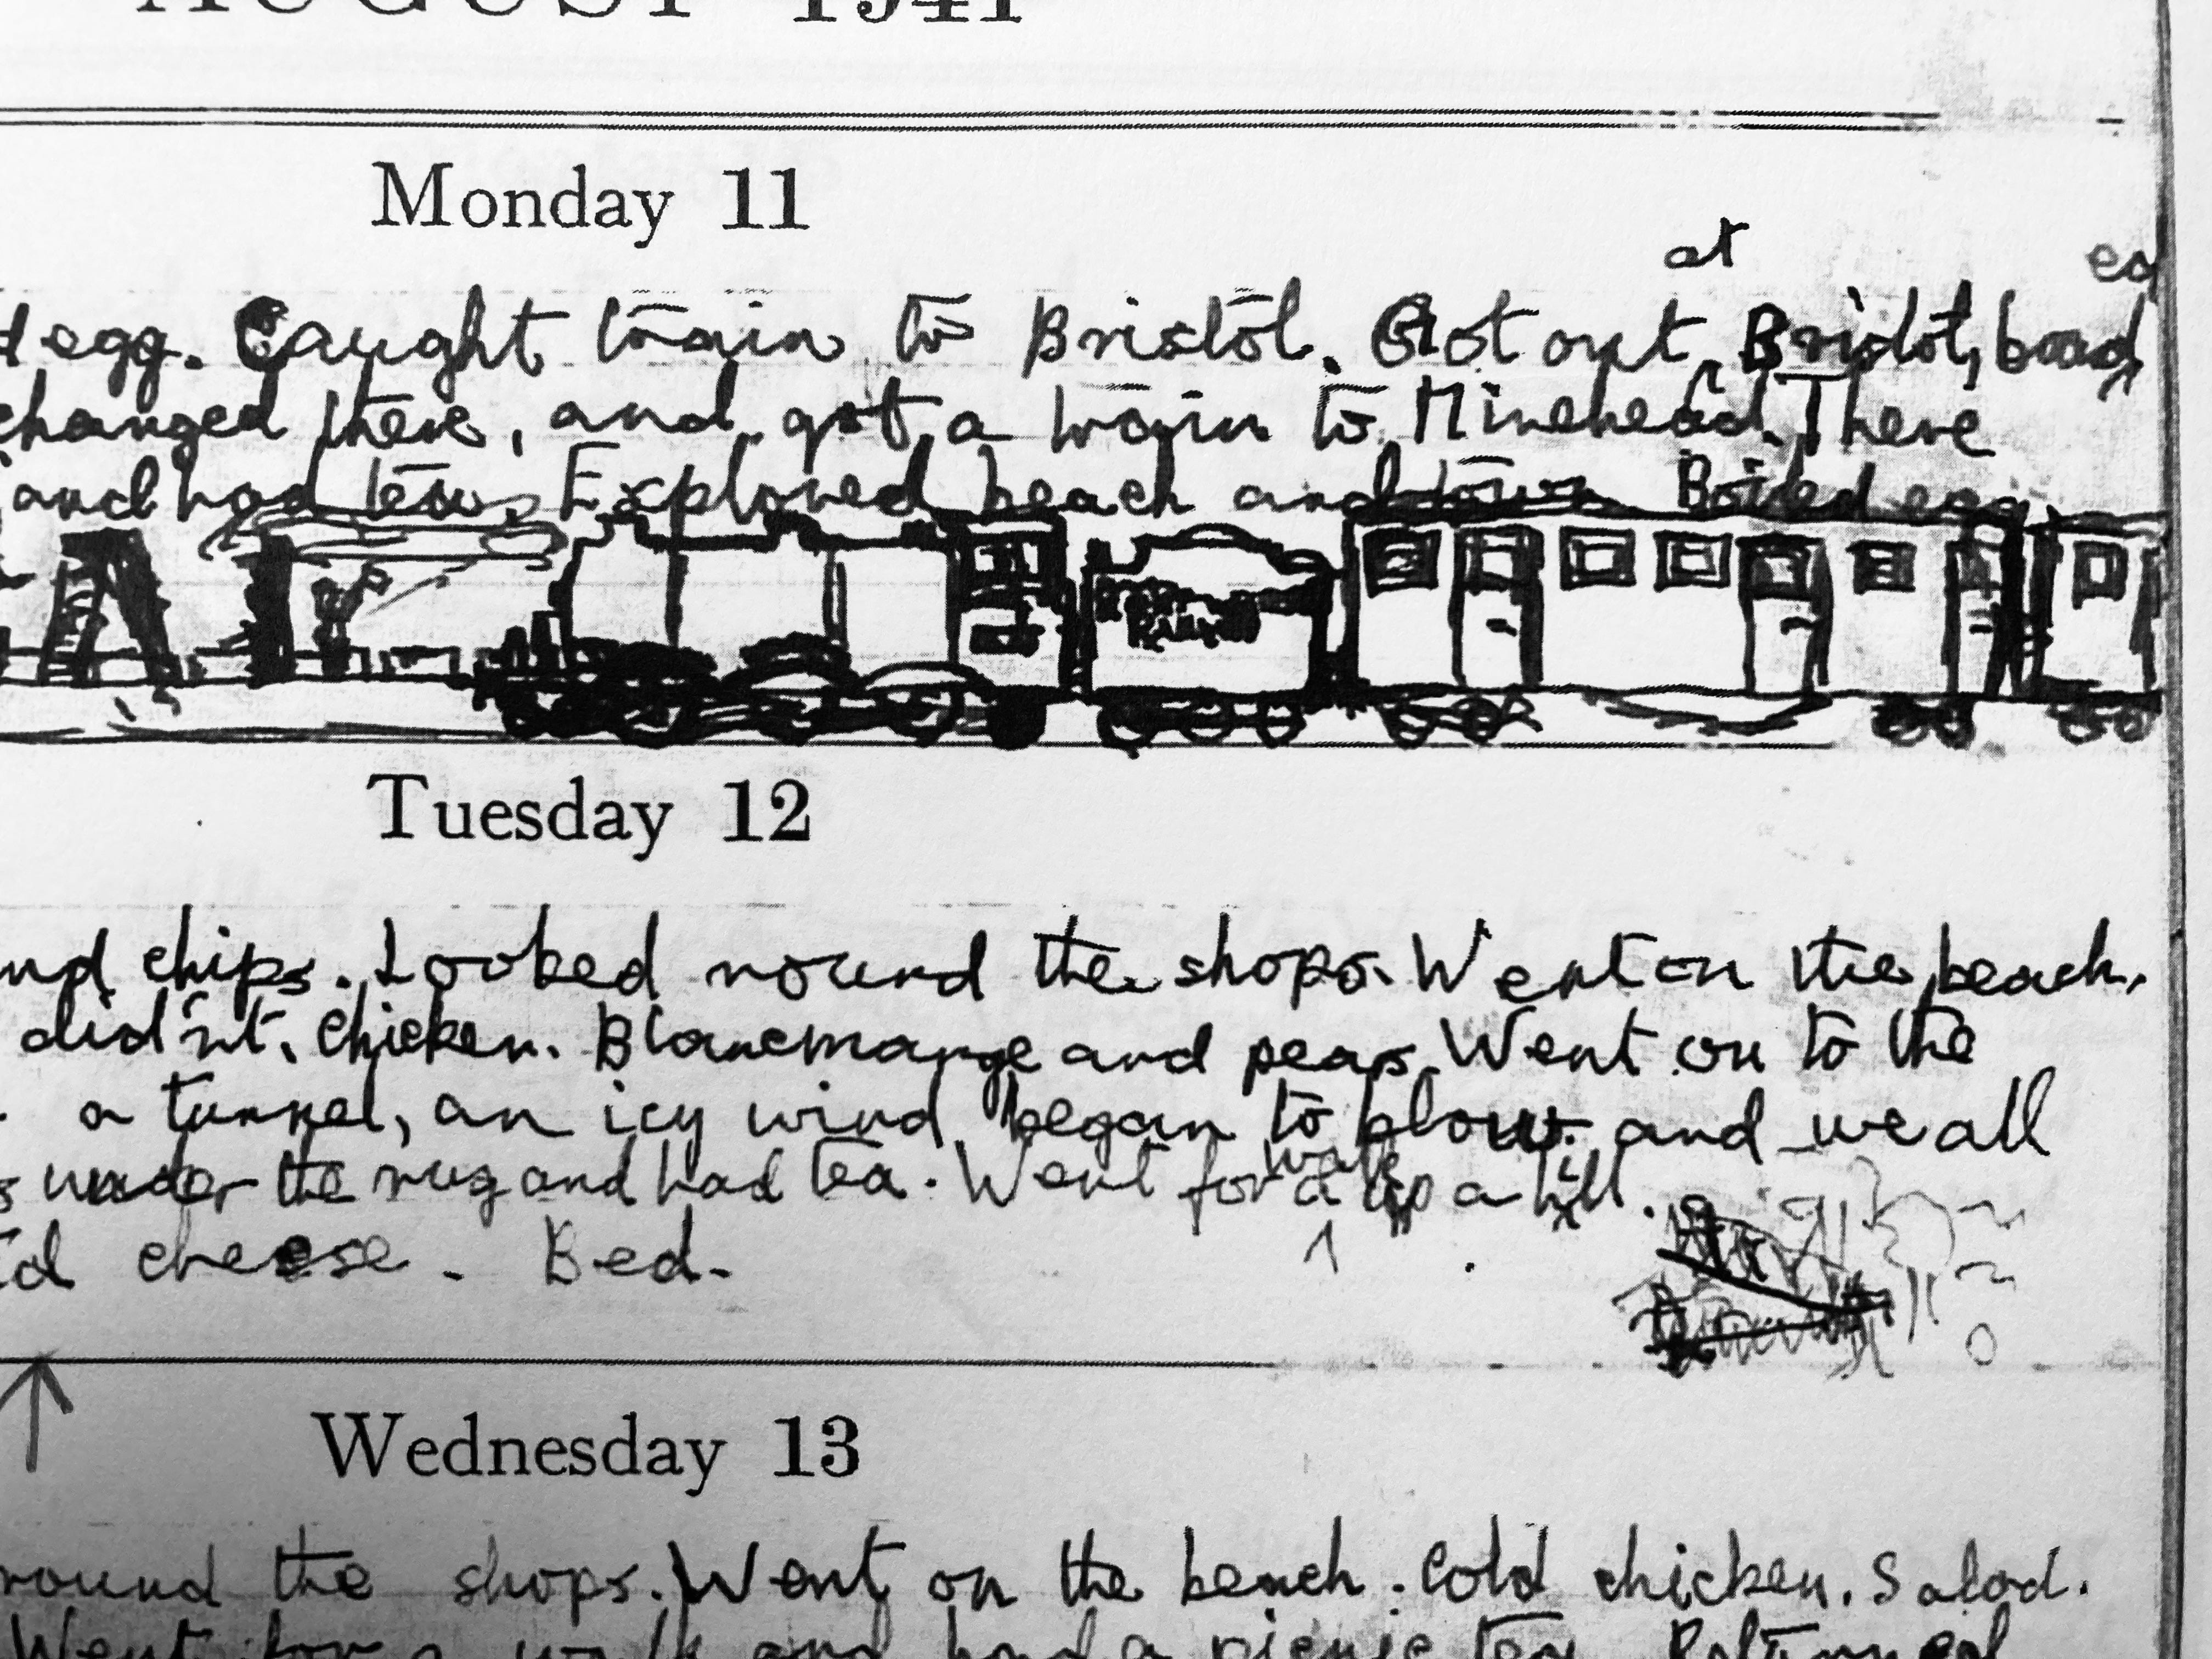 AUGUST 1941
Monday 11
at
egg. Caught train to Bristol. Got out Bristol,
changed there, and got a train to Minehead. There
and had tea. Explored beach and town Boiled egg
Tuesday 12
nd chips. Looked round the shops. Went on the beach.
did'nt. Chicken. Blancmange and pears. Went on to the
a tunnel, an icy wind began to blow. and we all
walk
s under the rug and had tea. Went for a up a hill.
cheese. Bed.
Wednesday 13
round the shops. Went on the beach. Cold chicken. Salad.
Went for a walk and had a picnic tea. Returned